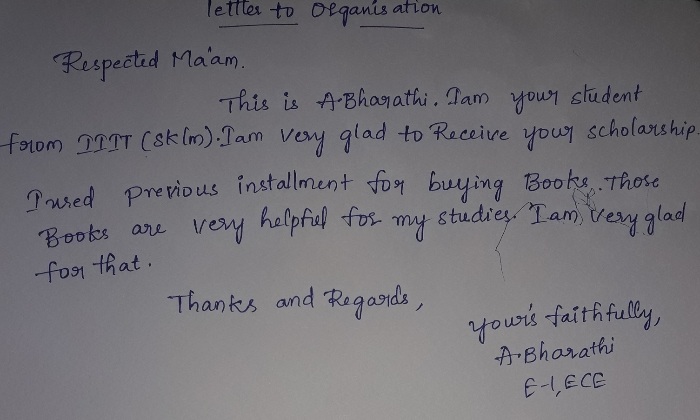 lettter to Organisation
Respected Ma'am.
This is A.Bharathi. Iam your student
from IIIT (SKlm). Iam very glad to Receive your scholarship.
I used previous installment for buying Books. Those
Books are very helpful for my studies. Iam very glad
for that.
Thanks and Regards,
your's faithfully,
A.Bharathi
E-1, ECE